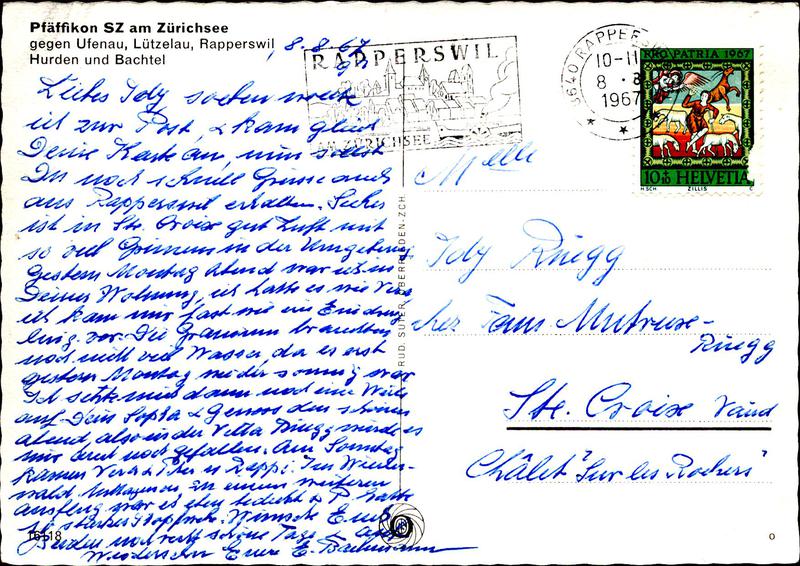 Pfäffikon SZ am Zürichsee
gegen Ufenau, Lützelau, Rapperswil
Hurden und Bachtel
8.8.67
RAPPERSWIL
AM ZÜRICHSEE
8640 RAPPERSWIL
10-11
8. 8.
1967
PRO PATRIA 1967
10+10 HELVETIA
HSCH ZILLIS C
Liebes Idy soeben
ist zur Post, & kam
Deine Karte an, nun sollst
Du noch schnell Grüsse auch
aus Rapperswil erhalten. Sicher
ist in Ste. Croix gut Luft mit
so viel in der Umgebung
Gestern Montag Abend war ich in
Deiner Wohnung, ich hatte es wie Vera
ich kam mir fast wie ein
vor. Die Geranium brauchten
noch nicht viel Wasser, da es erst
gestern Montag wieder sonnig war
Ich setzte mich dann noch eine Weile
auf Dein Sopha & Genoss den schönen
Abend, also in der Villa Rüegg würde es
mir auch noch gefallen. Am Sonntag
kamen Vera & Peter n. Rappi. Im
wald, zu einem weiteren
Ausflug war es eben bedeckt & P. hatte
starkes Wünsche Euch
noch recht schöne Tage & auf
Wiedersehn Eure E. Bachmann
16118
RUD. SUTER, OBERRIEDEN-ZCH
Melle
Idy Rüegg
chez Fam. Mutrux-
Rüegg
Ste. Croix Vaud
Châlet "Sur les Rochers"